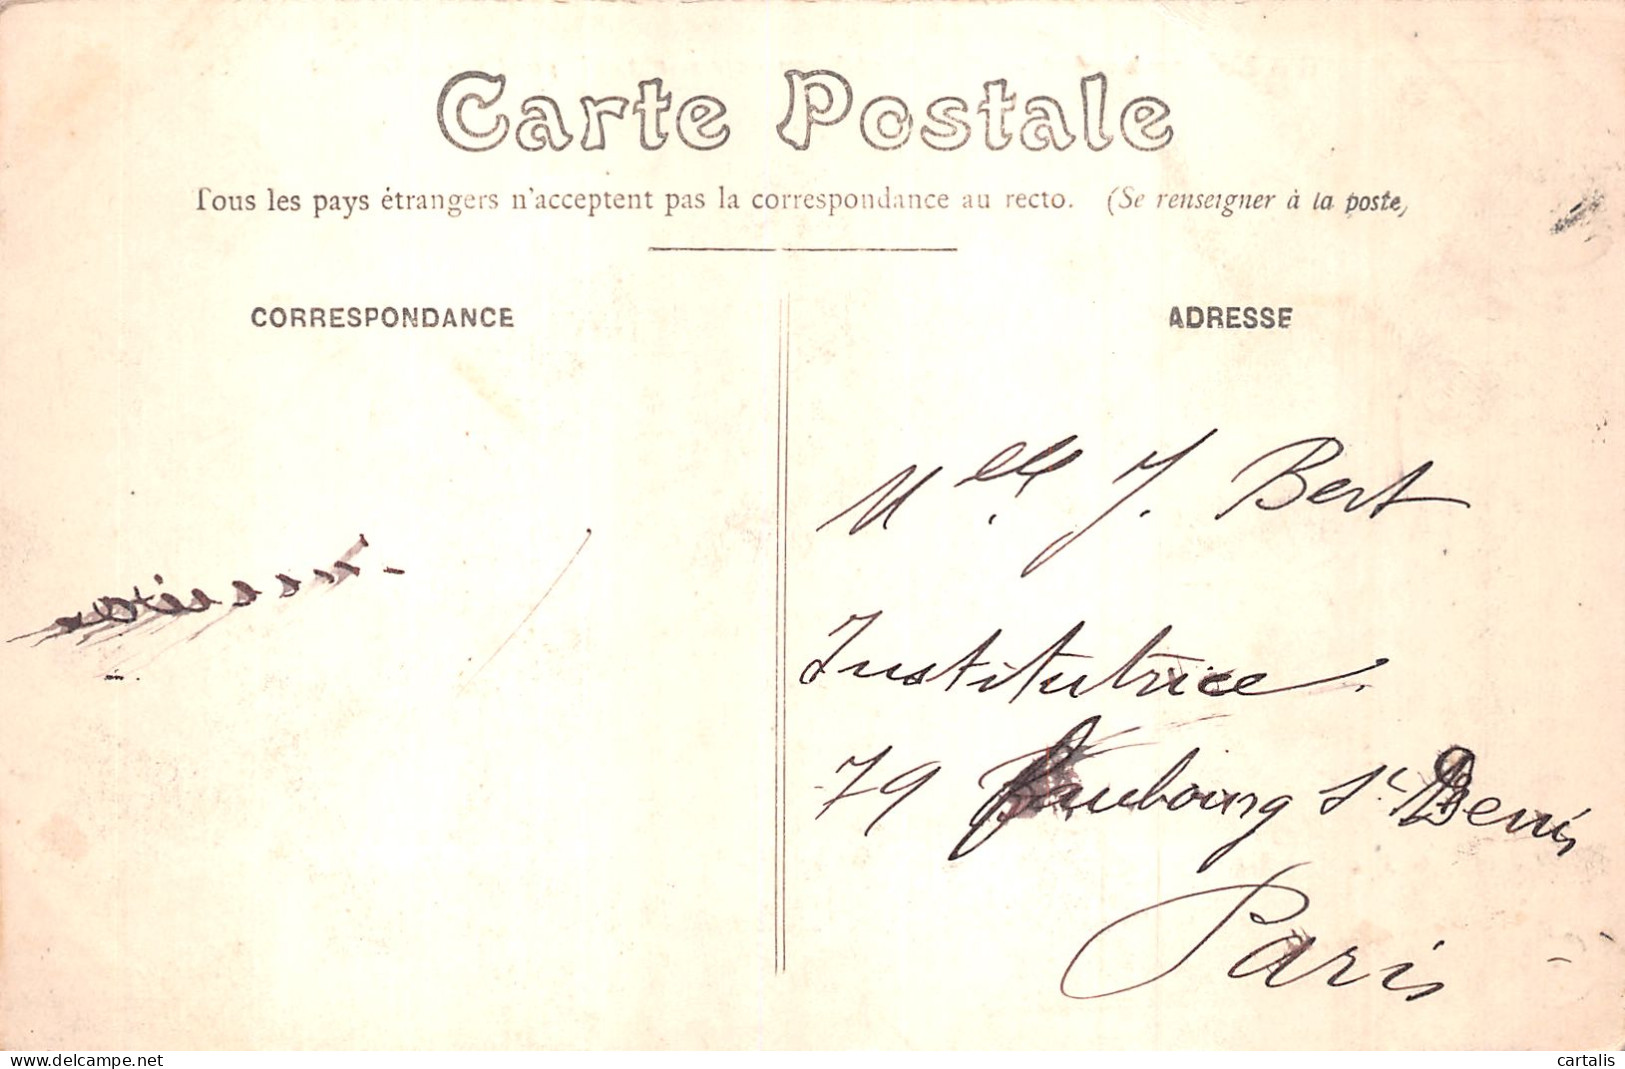 Carte Postale
Tous les pays étrangers n'acceptent pas la correspondance au recto. (Se renseigner à la poste)
CORRESPONDANCE
ADRESSE
Melle J. Bert
Institutrice
79 Faubourg St Denis
Paris
www.delcampe.net
cartalis